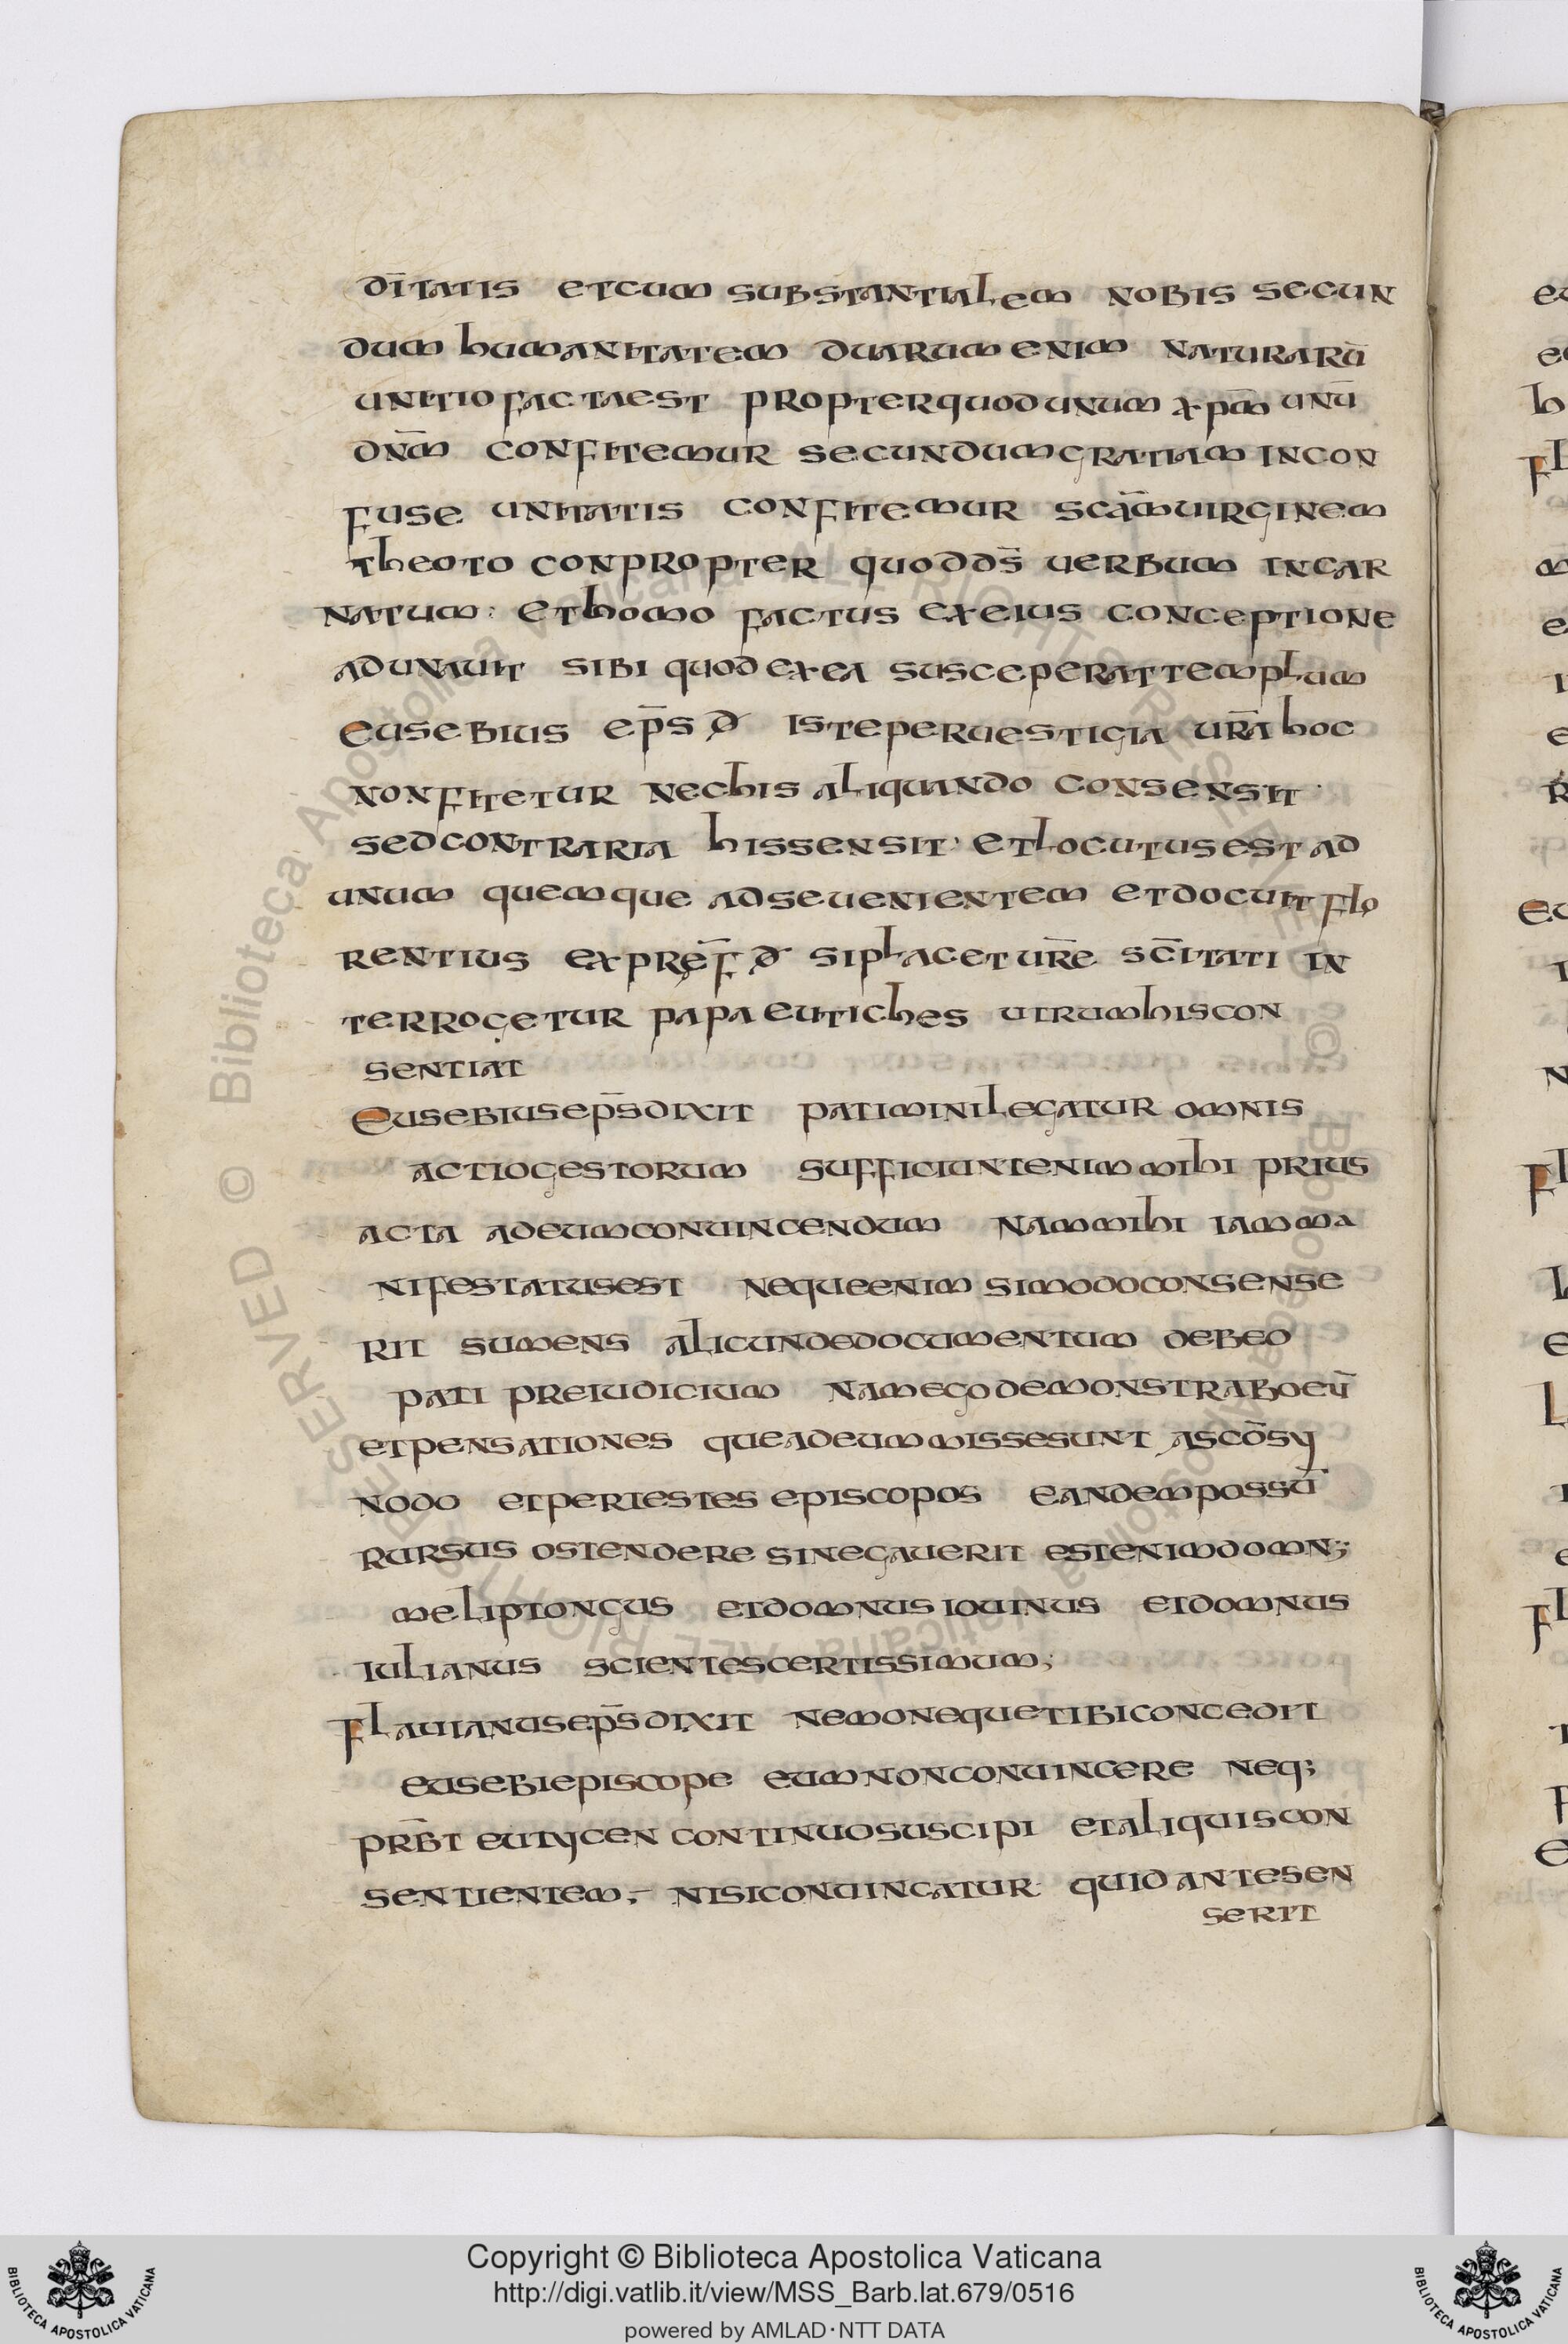 dītatis etcum substantialem nobis secun
dum humanitatem duarum enim naturarū
unitio factaest propterquod unum xp̄m unū
dn̄m confitemur secundum gratiam incon
fuse unitatis confitemur scām uirginem
theoto conpropter quod ds̄ uerbum incar
natum· et homo factus exeius conceptione
adunauit sibi quod exea susceperat templum
eusebius ep̄s đ iste peruestigia ur̄a hoc
nonfitetur nechis aliquando consensit·
sedcontraria hissensit· etlocutus est ad
unum quemque adse uenientem etdocuit flo
rentius expręf̄ đ siplacet ur̄e sc̄itati in
terrogetur papa eutiches utrumhiscon
sentiat
Eusebius ep̄s dixit patimini legatur omnis
actiogestorum sufficiunt enim mihi prius
acta adeumconuincendum nammihi iamma
nifestatusest nequeenim simodoconsense
rit sumens alicundedocumentum debeo
pati preiudicium namego demonstraboeū
etpensationes queadeummissesunt ascōsy
nodo etpertestes episcopos eandempossū
rursus ostendere sinegauerit estenimdomn;
meliptongus etdomnus iouinus etdomnus
iulianus scientescertissimum;
Flauianus ep̄s dixit nemonequetibiconcedit
eusebiepiscope eumnonconuincere neq;
prb̄t eutycen continuosuscipi etaliquiscon
sentientem; nisiconuincatur quid antesen
serit
Copyright © Biblioteca Apostolica Vaticana
http://digi.vatlib.it/view/MSS_Barb.lat.679/0516
powered by AMLAD·NTT DATA